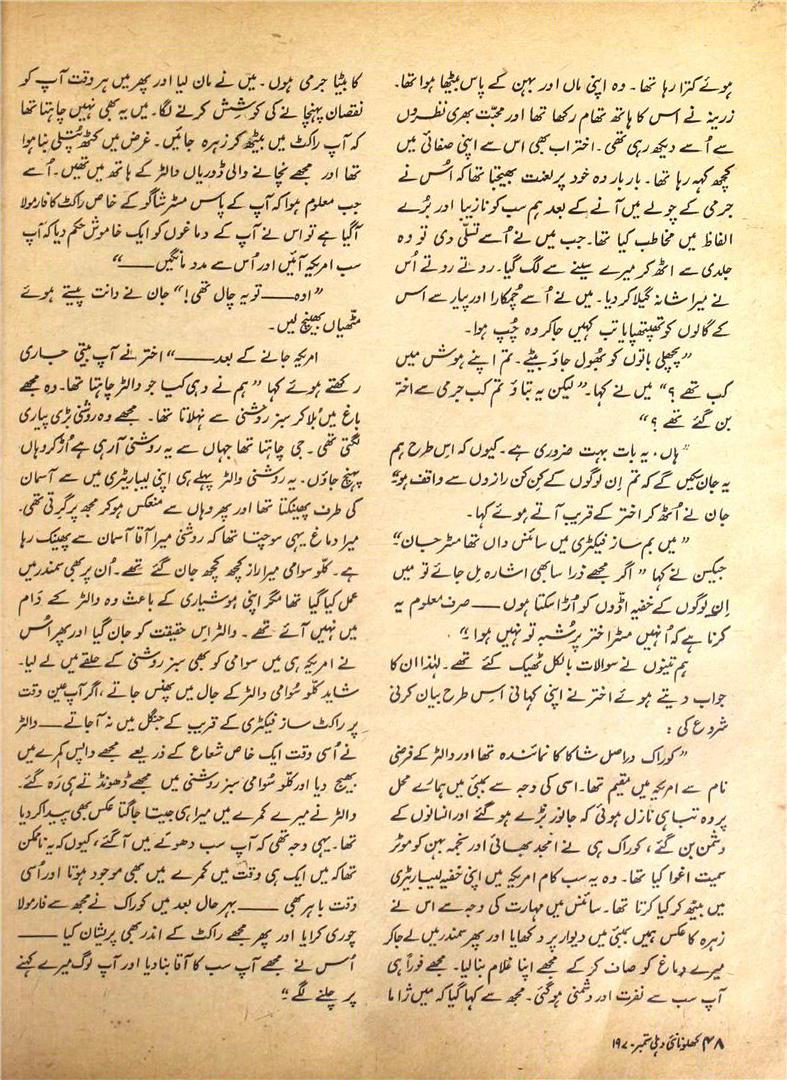 ہوئے کترا رہا تھا۔ وہ اپنی ماں اور بہن کے پاس بیٹھا ہوا تھا۔
زرینہ نے اس کا ہاتھ تھام رکھا تھا اور محبّت بھری نظروں
سے اُسے دیکھ رہی تھی۔ اختر اب بھی اس سے اپنی صفائی میں
کچھ کہہ رہا تھا۔ بار بار وہ خود پر لعنت بھیجتا تھا کہ اُس نے
جرمی کے چولے میں آنے کے بعد ہم سب کو نازیبا اور بُرے
الفاظ میں مخاطب کیا تھا۔ جب میں نے اُسے تسلّی دی تو وہ
جلدی سے اٹھ کر میرے سینے سے لگ گیا۔ روتے روتے اُس
نے میرا شانہ گیلا کر دیا۔ میں نے اُسے چُمکارا اور پیار سے اس
کے گالوں کو تھپتھپایا تب کہیں جا کر وہ چُپ ہوا۔
”پچھلی باتوں کو بھُول جاؤ بیٹے۔ تم اپنے ہوش میں
کب تھے؟“ میں نے کہا۔ ”لیکن یہ بتاؤ تم کب جرمی سے اختر
بن گئے تھے؟“
”ہاں۔ یہ بات بہت ضروری ہے۔ کیوں کہ اِس طرح ہم
یہ جان سکیں گے کہ تم اِن لوگوں کے کِن کِن رازوں سے واقف ہو“
جان نے اُٹھ کر اختر کے قریب آتے ہوئے کہا۔
”میں بم ساز فیکٹری میں سائنس داں تھا مسٹر جان“
جیکسن نے کہا ”اگر مجھے ذرا سا بھی اشارہ مِل جائے تو میں
اِن لوگوں کے خفیہ اڈّوں کو اُڑا سکتا ہوں —— صرف معلوم یہ
کرنا ہے کہ اُنہیں مسٹر اختر پر شُبہ تو نہیں ہوا“
ہم تینوں نے سوالات بالکل ٹھیک کئے تھے۔ لہٰذا ان کا
جواب دیتے ہوئے اختر نے اپنی کہانی اس طرح بیان کرنی
شروع کی:
”کوراک دراصل شاکا کا نمائندہ تھا اور والٹر کے فرضی
نام سے امریکہ میں مقیم تھا۔ اسی کی وجہ سے بمبئی میں ہمارے محل
پر وہ تباہی نازل ہوئی کہ جانور بڑے ہو گئے اور انسانوں کے
دشمن بن گئے، کوراک ہی نے امجد بھائی اور نجمہ بہن کو موٹر
سمیت اغوا کیا تھا۔ وہ یہ سب کام امریکہ میں اپنی خفیہ لیباریٹری
میں بیٹھ کر کیا کرتا تھا۔ سائنس میں مہارت کی وجہ سے اس نے
زہرہ کا عکس ہمیں بمبئی میں دیوار پر دکھایا اور پھر سمندر میں لے جا کر
میرے دماغ کو صاف کر کے مجھے اپنا غلام بنا لیا۔ مجھے فوراً ہی
آپ سب سے نفرت اور دشمنی ہو گئی۔ مجھ سے کہا گیا کہ میں ژاما
کا بیٹا جرمی ہوں۔ میں نے مان لیا اور پھر میں ہر وقت آپ کو
نقصان پہنچانے کی کوشش کرنے لگا۔ میں یہ بھی نہیں چاہتا تھا
کہ آپ راکٹ میں بیٹھ کر زہرہ جائیں۔ غرض میں کٹھ پُتلی بنا ہوا
تھا اور مجھے نچانے والی ڈوریاں والٹر کے ہاتھ میں تھیں۔ اُسے
جب معلوم ہوا کہ آپ کے پاس مسٹر شاگو کے خاص راکٹ کا فارمولا
آگیا ہے تو اس نے آپ کے دماغوں کو ایک خاموش حکم دیا کہ آپ
سب امریکہ آئیں اور اُس سے مدد مانگیں ——“
”اوہ —— تو یہ چال تھی!“ جان نے دانت پیستے ہوئے
مٹھیاں بھینچ لیں۔
امریکہ جانے کے بعد ——“ اختر نے آپ بیتی جاری
رکھتے ہوئے کہا ”ہم نے وہی کیا جو والٹر چاہتا تھا۔ وہ مجھے
باغ میں بُلا کر سبز روشنی سے نہلاتا تھا۔ مجھے وہ روشنی بڑی پیاری
لگتی تھی۔ جی چاہتا تھا جہاں سے یہ روشنی آرہی ہے اُڑ کر وہاں
پہنچ جاؤں۔ یہ روشنی والٹر پہلے ہی اپنی لیباریٹری میں سے آسمان
کی طرف پھینکتا تھا اور پھر وہاں سے منعکس ہو کر مجھ پر گرتی تھی۔
میرا دماغ یہی سوچتا تھا کہ روشنی میرا آقا آسمان سے پھینک رہا
ہے۔ کلّو سوامی میرا راز کچھ کچھ جان گئے تھے۔ اُن پر بھی سمندر میں
عمل کیا گیا تھا مگر اپنی ہوشیاری کے باعث وہ والٹر کے دَام
میں نہیں آئے تھے۔ والٹر اِس حقیقت کو جان گیا اور پھر اُس
نے امریکہ ہی میں سوامی کو بھی سبز روشنی کے حلقے میں لے لیا۔
شاید کلّو سُوامی والٹر کے جال میں پھنس جاتے، اگر آپ عین وقت
پر راکٹ ساز فیکٹری کے قریب کے جنگل میں نہ آ جاتے —— والٹر
نے اُسی وقت ایک خاص شعاع کے ذریعے مجھے واپس کمرے میں
بھیج دیا اور کلّو سُوامی سبز روشنی میں مجھے ڈھونڈتے ہی رہ گئے۔
والٹر نے میرے کمرے میں میرا ہی جیتا جاگتا عکس بھی پیدا کر دیا
تھا۔ یہی وجہ تھی کہ آپ سب دھوکے میں آ گئے، کیوں کہ یہ ناممکن
تھا کہ میں ایک ہی وقت میں کمرے میں بھی موجود ہوتا اور اُسی
وقت باہر بھی —— بہر حال بعد میں کوراک نے مجھ سے فارمولا
چوری کرایا اور پھر مجھے راکٹ کے اندر بھی پریشان کیا ——
اُس نے مجھے آپ سب کا آقا بنا دیا اور آپ لوگ میرے کہنے
پر چلنے لگے“
۴۸ کھلونا نئی دہلی ستمبر ۱۹۷۰